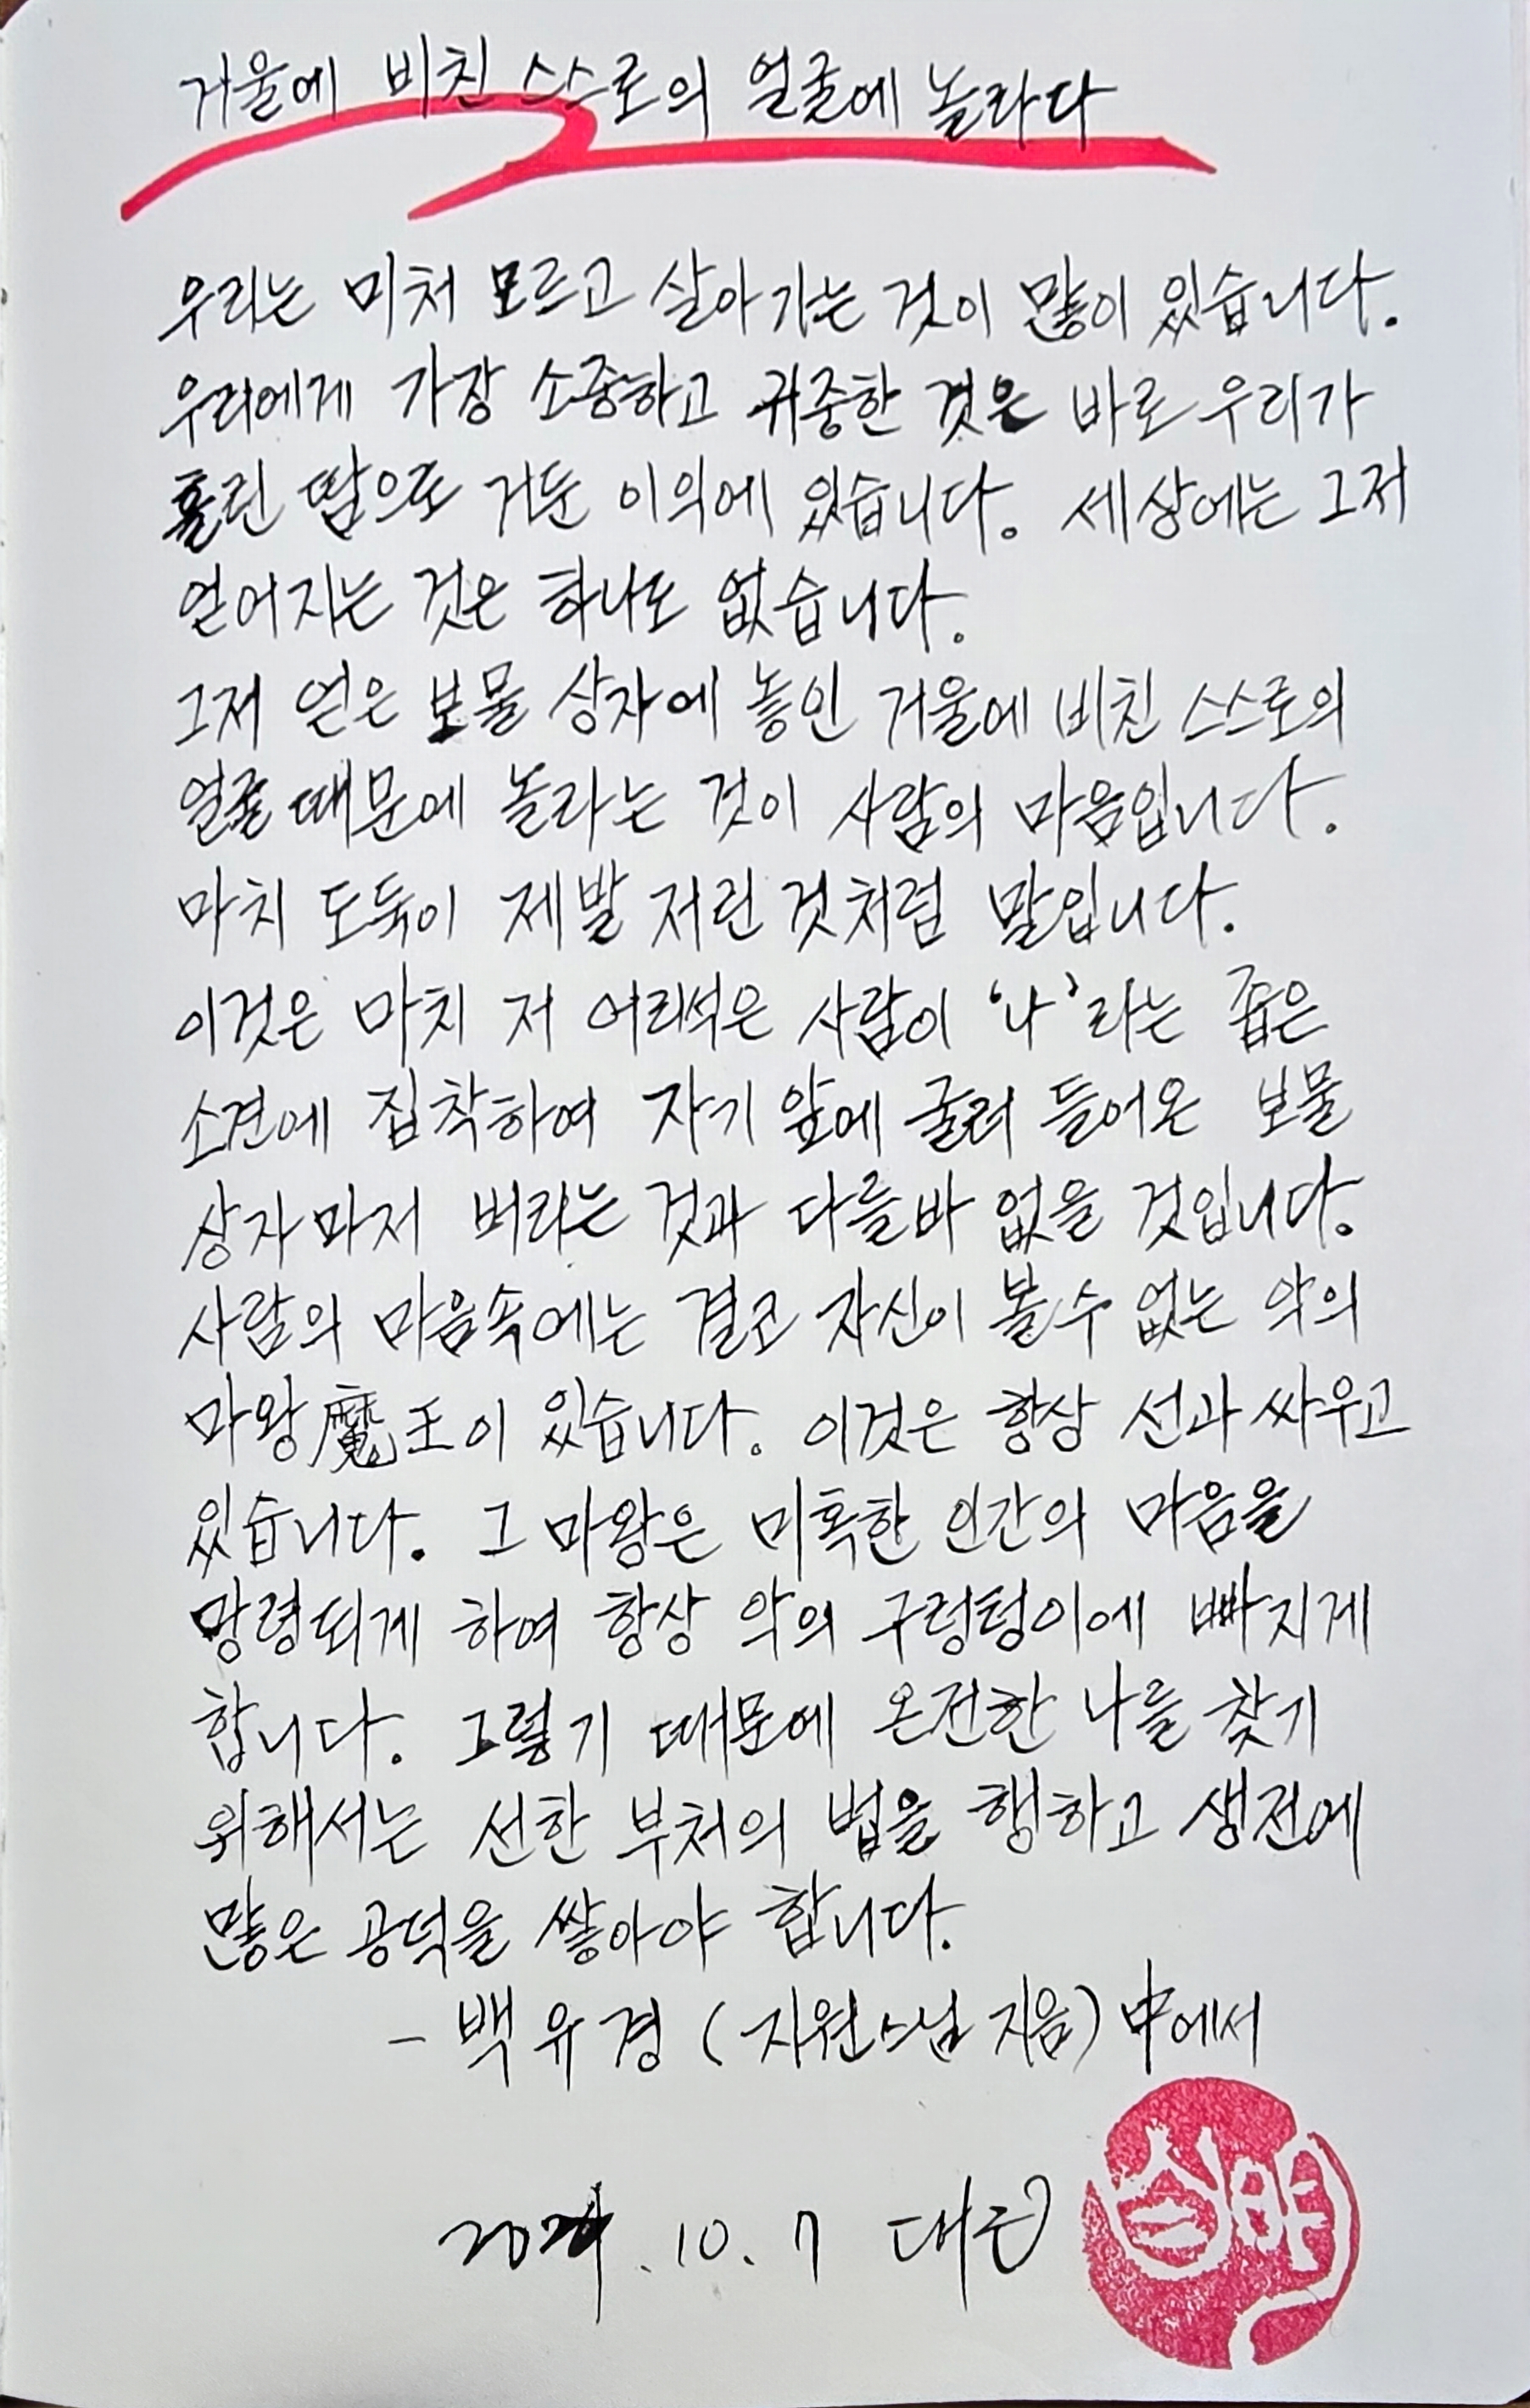 거울에 비친 스스로의 얼굴에 놀라다
우리는 미처 모르고 살아가는 것이 많이 있습니다.
우리에게 가장 소중하고 귀중한 것은 바로 우리가
흘린 땀으로 거둔 이익에 있습니다. 세상에는 그저
얻어지는 것은 하나도 없습니다.
그저 얻은 보물 상자에 놓인 거울에 비친 스스로의
얼굴 때문에 놀라는 것이 사람의 마음입니다.
마치 도둑이 제발 저린 것처럼 말입니다.
이것은 마치 저 어리석은 사람이 '나'라는 좁은
소견에 집착하여 자기 앞에 굴러 들어온 보물
상자마저 버리는 것과 다를바 없을 것입니다.
사람의 마음속에는 결코 자신이 볼수 없는 악의
마왕魔王이 있습니다. 이것은 항상 선과 싸우고
있습니다. 그 마왕은 미혹한 인간의 마음을
망령되게 하여 항상 악의 구렁텅이에 빠지게
합니다. 그렇기 때문에 온전한 나를 찾기
위해서는 선한 부처의 법을 행하고 생전에
많은 공덕을 쌓아야 합니다.
- 백유경 (지원스님 지음) 中에서
10. 7